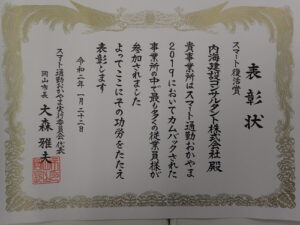 表彰状
スマート復活賞
内海建設コンサルタント株式会社 殿
貴事業所はスマート通勤おかやま
2019においてカムバックされた
事業所の中で最も多くの従業員様が
参加されました
よってここにその功労をたたえ
表彰します
令和二年一月二十二日
スマート通勤おかやま実行委員会代表
岡山市長 大森雅夫